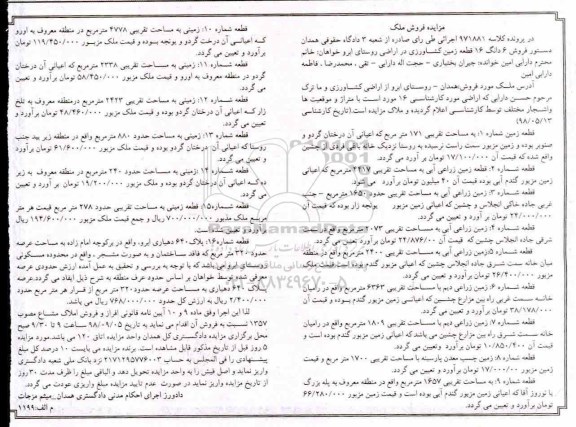 مزایده فروش ملک
در پرونده کلاسه ۹۷۱۸۸۱ اجرائی طی رای صادره از شعبه ۳ دادگاه حقوقی همدان
دستور فروش ۶ دانگ ۱۶ قطعه زمین کشاورزی در اراضی روستای ابرو خواهان: خانم
محترم دارابی امین خوانده: جیران بختیاری - حجت اله دارابی - تقی ، محمدرضا ، فاطمه
دارابی امین
آدرس ملک مورد فروش: همدان - روستای ابرو از اراضی کشاورزی و ما ترک
مرحوم حسن دارابی که اراضی مورد کارشناسی ۱۶ مورد است با متراژ و موقعیت ها
واشجار مختلف توسط کارشناسی اعلام گردیده و ملاک مزایده است.(تاریخ کارشناسی
۹۸/۰۵/۱۳)
قطعه زمین شماره ۱: به مساحت تقریبی ۱۷۱ متر مربع که اعیانی آن درختان گردو و
صنوبر بوده و زمین مزبور سمت راست نرسیده به روستا نزدیک خانه باقی فردی از چشین
واقع شده که قیمت آن ۱۷/۱۰۰/۰۰۰ تومان بر آورد می گردد.
قطعه شماره ۲: قطعه زمین زراعی آبی به مساحت تقریبی ۲۴۱۷ مترمربع که اعیانی
زمین مزبور گندم آبی بوده قیمت آن ۴۰ میلیون تومان برآورد می شود.
قطعه شماره ۳: زمین زراعی آبی به مساحت تقریبی حدود ۱۶۵۰ مترمربع - جنب
غربی جاده خاکی انجلاس و چشین که اعیانی زمین مزبور یونجه زار بوده که قیمت آن
۲۴/۰۰۰/۰۰۰ تومان بر آورد و تعیین می گردد.
قطعه شماره ۴: زمین زراعی آبی به مساحت تقریبی ۲۰۷۳ مترمربع واقع در
شرقی جاده انجلاس چشین که قیمت آن ۲۴/۸۷۶/۰۰ تومان برآورد و تعیین می گردد.
قطعه شماره ۵: زمین زراعی آبی به مساحت تقریبی ۲۴۰۰ مترمربع واقع در منطقه
میان خانه سمت شرق جاده انجلاس چشین که اعیانی مزبور گندم بوده قیمت ملک
مزبور ۲۶/۴۰۰/۰۰۰ تومان برآورد و تعیین می گردد.
قطعه شماره ۶: زمین زراعی دیم با مساحت تقریبی ۶۳۶۳ مترمربع واقع در رامیان
خانه سمت غربی راه بین مزارع چشین که اعیانی زمین مزبور گندم بوده و قیمت آن
۳۸/۱۷۸/۰۰۰ تومان برآورد می گردد.
قطعه شماره ۷: زمین زراعی دیم با مساحت تقریبی ۱۸۰۹ مترمربع واقع در رامیان
خانه سمت شرق راه بین مزارع چشین می باشد که اعیانی زمین مزبور گندم بوده است و
قیمت آن ۱۰/۸۵۰/۴۰۰ تومان برآورد وتعیین می گردد.
قطعه شماره ۸: زمین چسب معدن پارسینه با مساحت تقریبی ۱۷۰۰ متر مربع و قیمت
زمین مزبور ۱۷/۰۰۰/۰۰۰ تومان برآورد و تعیین می گردد.
قطعه شماره ۹: زمینی به مساحت تقریبی ۱۶۵۷ مترمربع واقع در منطقه معروف به پله بزرگ
یا نوروز آقا که اعیانی زمین مزبور گندم آبی بوده است و قیمت زمین مزبور ۶۶/۲۸۰/۰۰۰
تومان برآورد و تعیین می گردد.
قطعه شماره ۱۰: زمینی به مساحت تقریبی ۴۷۷۸ مترمربع در منطقه معروف به اورو
که اعیانی آن درخت گردو و یونجه بوده و قیمت ملک مزبور ۱۱۹/۴۵۰/۰۰۰ تومان
برآورد و تعیین می گردد.
قطعه شماره ۱۱: زمینی به مساحت تقریبی ۲۳۳۸ مترمربع که اعیانی آن درختان
گردو در منطقه معروف به اورو و قیمت ملک مزبور ۵۸/۴۵۰/۰۰۰ تومان برآورد و تعیین
می گردد.
قطعه شماره ۱۲: زمینی به مساحت تقریبی ۲۴۲۳ مترمربع درمنطقه معروف به تلخ
زار که اعیانی آن درختان گردو بوده و قیمت ملک مزبور ۴۸/۴۶۰/۰۰۰ تومان برآورد و
تعیین می گردد.
قطعه شماره ۱۳: زمینی به مساحت حدود ۸۸۰ مترمربع واقع در منطقه زیر پید جنب
روستا که اعیانی آن درختان گردو بوده و قیمت ملک مزبور ۶۱/۶۰۰/۰۰۰ تومان برآورد
و تعیین می گردد.
قطعه شماره ۱۴: زمینی به مساحت حدود ۲۴۰ مترمربع در منطقه معروف به زیر
ده که اعیانی آن درختان گردو بوده و ملک مزبور ۱۹/۲۰۰/۰۰۰ تومان بر آورد و تعیین
می گردد.
قطعه شماره ۱۵: قطعه زمینی به مساحت تقریبی حدود ۲۷۸ متر مربع قیمت هر متر
مربع ملک مذبور ۷۰۰/۰۰۰/۰۰۰ ریال و جمع قیمت ملک مزبور ۱۹۴/۶۰۰/۰۰۰ ریال
برآورد و تعیین می گردد.
قطعه شماره ۱۶: پلاک ۶۴۰ دهیاری ابرو، واقع در برکوچه امام زاده به مساحت عرصه
حدود ۳۲۰ متر مربع که فاقد ساختمان و به صورت مشجر ، واقع در محدوده مسکونی
روستای ابرو می باشد که با توجه به بررسی و تحقیق به عمل آمده ارزش حدودی عرصه
معرفی شده توسط خواهان بر اساس حدود عرف منطقه به شرح ذیل ایفاد می گردد. عرصه
پلاک ۶۴۰ دهیاری به مساحت عرصه حدود ۳۲۰ متر مربع از قرار هر متر مربع حدود
۲/۴۰۰/۰۰۰ ریال به ارزش کل حدود ۷۶۸/۰۰۰/۰۰۰ ریال می باشد.
لذا این اجرا وفق ماده ۹ و ۱۰ آیین نامه قانونی افراز و فروش املاک مشاع مصوب
۱۳۵۷ نسبت به فروش آن اقدام می نماید به تاریخ ۹۸/۰۹/۰۵ ساعت ۹ تا ۹/۳۰ صبح
محل برگزاری مزایده دادگستری کل همدان واحد مزایده اتاق ۱۲۰ می باشد.مورد مزایده
۵ روز قبل از تاریخ مذکور قابل مشاهده است. برنده مزایده می بایست ۱۰ درصد کل مبلغ
پیشنهادی را فی المجلس به حساب ۲۱۷۱۲۹۵۷۶۰۰۳ نزد بانک ملی شعبه دادگستری
واریز نماید و اصل فیش را به واحد مزایده تحویل دهد و الباقی مبلغ را ظرف مدت ۳۰ روز
از تاریخ مزایده واریز نماید در صورت عدم تایید مزایده مبلغ واریزی عودت می گردد.
دادورز اجرای احکام مدنی دادگستری همدان_میثم مزجات
م الف:۱۱۹۹